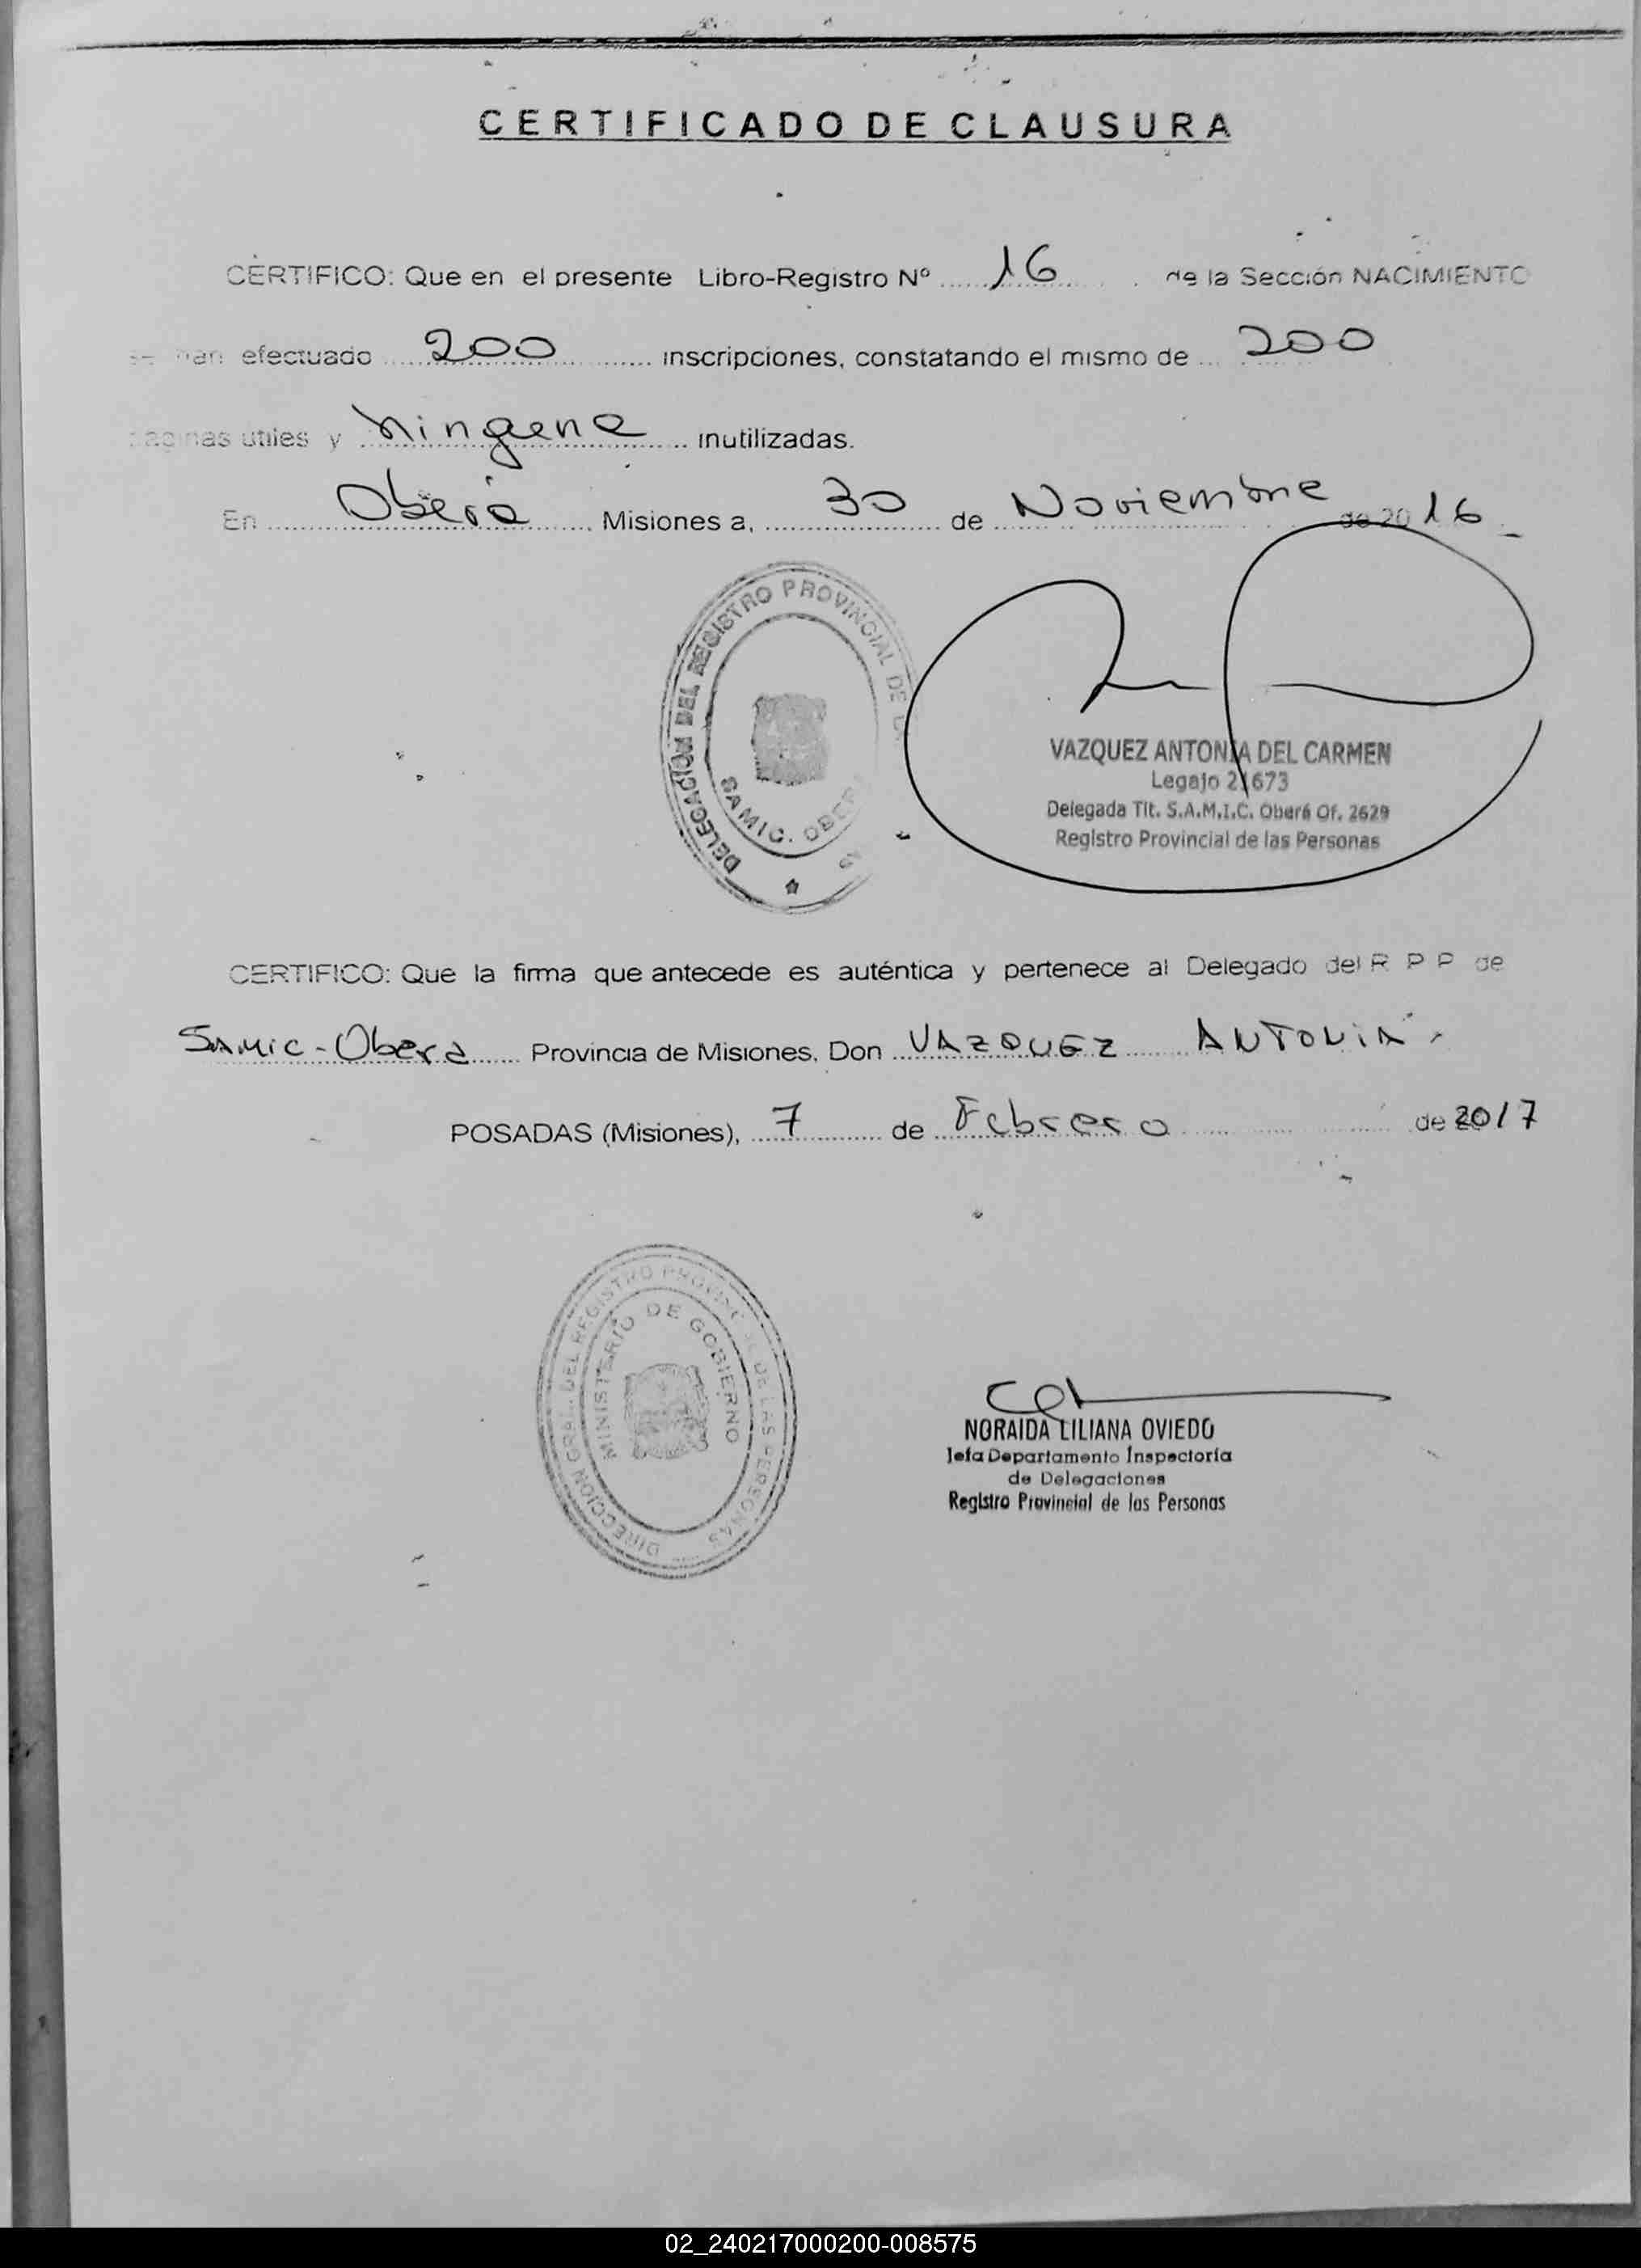 CERTIFICADO DE CLAUSURA
CERTIFICO: Que en el presente Libro-Registro Nº 16 de la Sección NACIMIENTO
se han efectuado 200 inscripciones, constatando el mismo de 200
páginas utiles y ninguna inutilizadas.
En Oberá Misiones a, 30 de Noviembre de 2016
DELEGACION DEL REGISTRO PROVINCIAL DE
SAMIC. OBERA
VAZQUEZ ANTONIA DEL CARMEN
Legajo 21673
Delegada Tit. S.A.M.I.C. Oberá Of. 2629
Registro Provincial de las Personas
CERTIFICO: Que la firma que antecede es auténtica y pertenece al Delegado del R P P de
SAMIC - Obera Provincia de Misiones, Don VAZQUEZ ANTONIA
POSADAS (Misiones), 7 de Febrero de 2017
DIRECCION GRAL. DEL REGISTRO PROVINCIAL DE LAS PERSONAS
MINISTERIO DE GOBIERNO
NORAIDA LILIANA OVIEDO
Jefa Departamento Inspectoría
de Delegaciones
Registro Provincial de las Personas
02_240217000200-008575